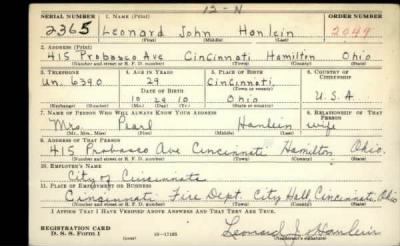 12-N
SERIAL NUMBER 1. NAME (Print) ORDER NUMBER
2365 Leonard John Hanlein 2049
(First) (Middle) (Last)
2. ADDRESS (Print)
415 Probasco Ave Cincinnati Hamilton Ohio
(Number and street or R. F. D. number) (Town) (County) (State)
3. TELEPHONE 4. AGE IN YEARS 5. PLACE OF BIRTH 6. COUNTRY OF CITIZENSHIP
Un. 6390 29 Cincinnati
(Town or county)
DATE OF BIRTH
10 29 10 Ohio U.S.A
(Exchange) (Number) (Mo.) (Day) (Yr.) (State or country)
7. NAME OF PERSON WHO WILL ALWAYS KNOW YOUR ADDRESS 8. RELATIONSHIP OF THAT PERSON
Mrs. Pearl Hanlein wife
(Mr., Mrs., Miss) (First) (Middle) (Last)
9. ADDRESS OF THAT PERSON
415 Probasco Ave Cincinnati Hamilton Ohio.
(Number and street or R. F. D. number) (Town) (County) (State)
10. EMPLOYER'S NAME
City of Cincinnati
11. PLACE OF EMPLOYMENT OR BUSINESS
Cincinnati Fire Dept. City Hall, Cincinnati, Ohio
(Number and street or R. F. D. number) (Town) (County) (State)
I AFFIRM THAT I HAVE VERIFIED ABOVE ANSWERS AND THAT THEY ARE TRUE.
REGISTRATION CARD
D. S. S. Form 1 (over) 16-17105 Leonard J. Hanlein
(Registrant's signature)